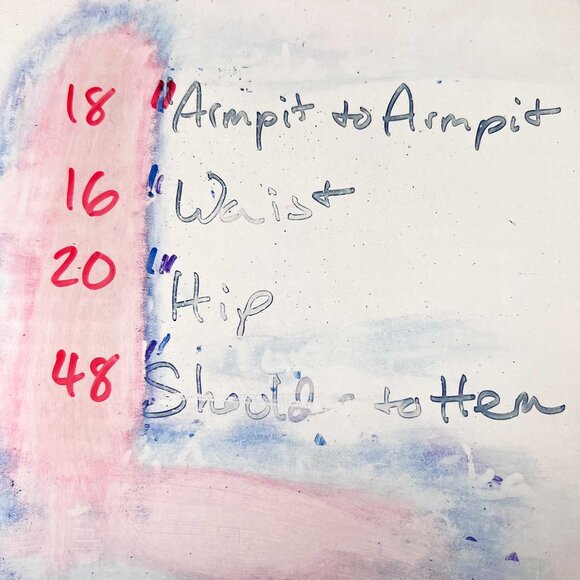 18 "Armpit to Armpit
16 "Waist
20 "Hip
48 "Should - to Hem